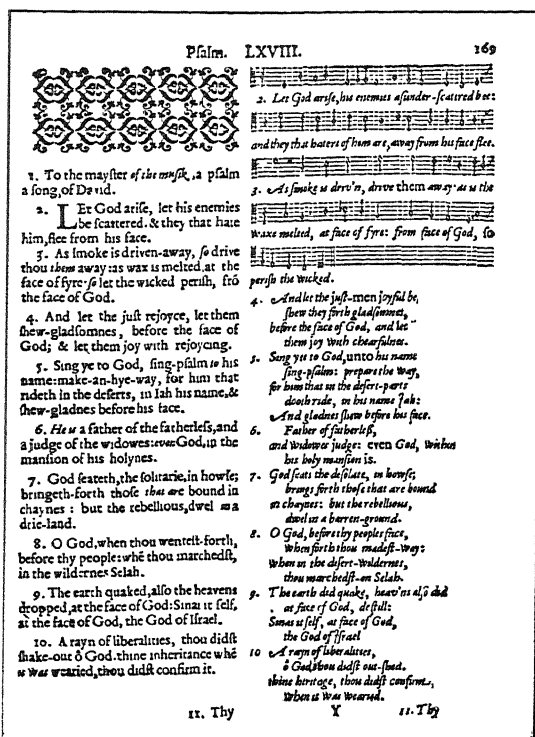 Psalm. LXVIII. 169
1. To the mayster of the musik, a psalm
a song, of David.
2. LEt God arise, let his enemies
be scattered. & they that hate
him, flee from his face.
3. As smoke is driven-away, so drive
thou them away: as wax is melted, at the
face of fyre-so let the wicked perish, frõ
the face of God.
4. And let the just rejoyce, let them
shew-gladsomnes, before the face of
God; & let them joy with rejoycing.
5. Sing ye to God, sing-psalm to his
name: make-an-hye-way, for him that
rideth in the deserts, in Iah his name, &
shew-gladnes before his face.
6. He is a father of the fatherless, and
a judge of the widowes: even God, in the
mansion of his holynes.
7. God seateth, the solitarie, in howse;
bringeth-forth those that are bound in
chaynes : but the rebellious, dwel in a
drie-land.
8. O God, when thou wentest-forth,
before thy people: whẽ thou marchedst,
in the wildernes Selah.
9. The earth quaked, also the heavens
dropped, at the face of God: Sinai it self,
at the face of God, the God of Israel.
10. A rayn of liberalities, thou didst
shake-out ô God. thine inheritance whẽ
it was wearied, thou didst confirm it.
11. Thy
2. Let God arise, his enemies asunder-scattred bee:
and they that haters of him are, away from his face flee.
3. As smoke is driv'n, drive them away: as is the
waxe melted, at face of fyre: from face of God, so
perish the wicked.
4. And let the just-men joyful be,
shew they forth gladsomnes,
before the face of God, and let
them joy with chearfulnes.
5. Seng yee to God, unto his name
sing-psalm: prepare the way,
for him that in the desert-parts
dooth ride, in his name Jah:
And gladnes shew before his face.
6. Father of fatherless,
and widowes judge: even God, within
his holy mansion is.
7. God seats the desolate, in howse;
brings forth those that are bound
in chaynes: but the rebellious,
dwel in a barren-ground.
8. O God, before thy peoples face,
when forth thou madest-way:
when in the desert-wildernes,
thou marchedst-on Selah.
9. The earth did quake, heav'ns also did
at face of God, destill:
Sinai it self, at face of God,
the God of Israel
10 A rayn of liberalities,
ô God, thou didst out-shed.
thine heritage, thou didst confirm,
when it was wearied.
Y 11. Thy